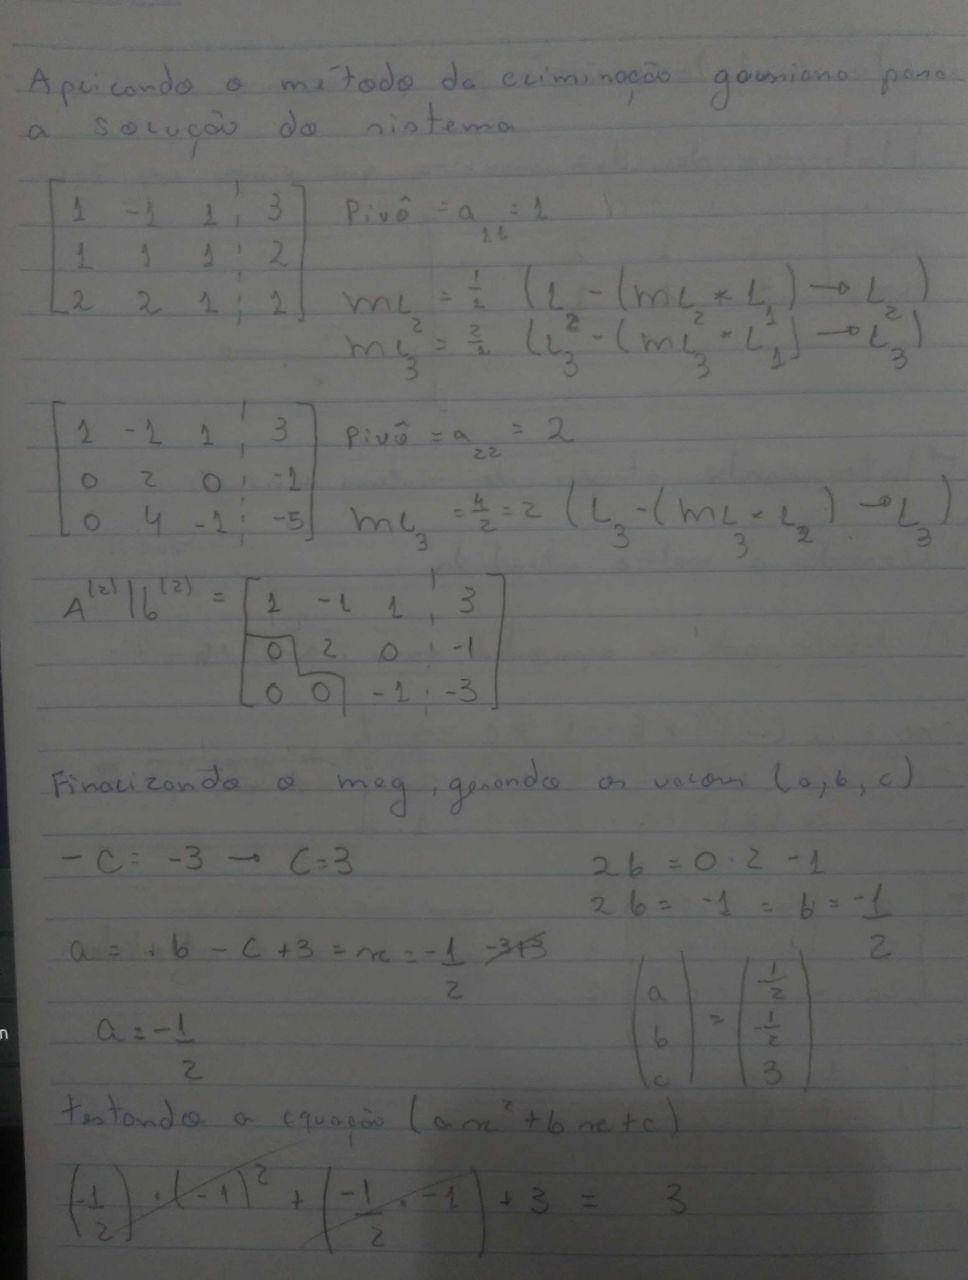 Aplicando o método da eliminação gaussiana para
a solução do sistema
[1 -1 1 ¦ 3] Pivô = a₁₁ = 1
[1 1 1 ¦ 2] mL₂ = 1/1 (L₂ - (mL₂ * L₁) → L₂)
[2 2 1 ¦ 1] mL₃ = 2/1 (L₃ - (mL₃ * L₁) → L₃)
[1 -1 1 ¦ 3] Pivô = a₂₂ = 2
[0 2 0 ¦ -1]
[0 4 -1 ¦ -5] mL₃ = 4/2 = 2 (L₃ - (mL₃ * L₂) → L₃)
A⁽²⁾|b⁽²⁾ = [1 -1 1 ¦ 3]
[0 2 0 ¦ -1]
[0 0 -1 ¦ -3]
Finalizando o meg, gerando os valores (a, b, c)
-c = -3 → c = 3 2b = 0·2 -1
2b = -1 = b = -1/2
a = +b - c + 3 = x = -1/2 -3+3
a = -1/2
(a b c) = (-1/2 -1/2 3)
testando a equação (ax² + bx + c)
(-1/2) · (-1)² + (-1/2 · -1) + 3 = 3
n